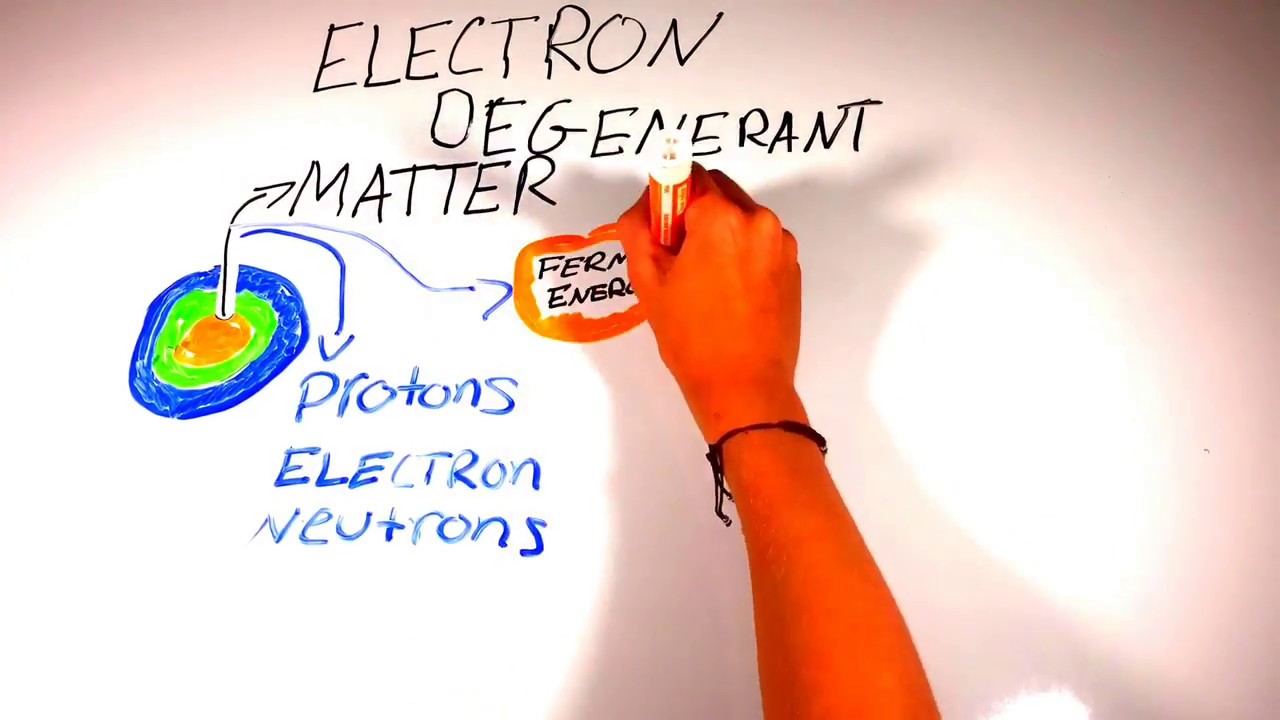 ELECTRON
DEGENERANT
MATTER
FERM
ENERG
Protons
ELECTRON
Neutrons